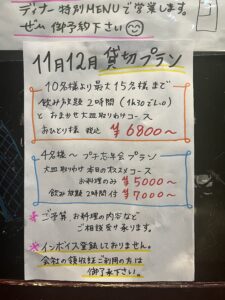 ディナー特別MENUで営業します。
ぜひ 御予約下さい
11月12月 貸切プラン
10名様より最大15名様まで
飲み放題 2時間 (1h30でL.O)
と おまかせ大皿取りわけコース
おひとり様 税込 ¥6800〜
4名様〜 プチ忘年会プラン
大皿取りわけ 本日のおススメコース
お料理のみ ¥5000〜
飲み放題2時間付 ¥7000〜
*ご予算 お料理の内容など
ご相談受け承ります。
*インボイス登録しておりません。
会社の領収証ご利用の方は
御了承下さい。